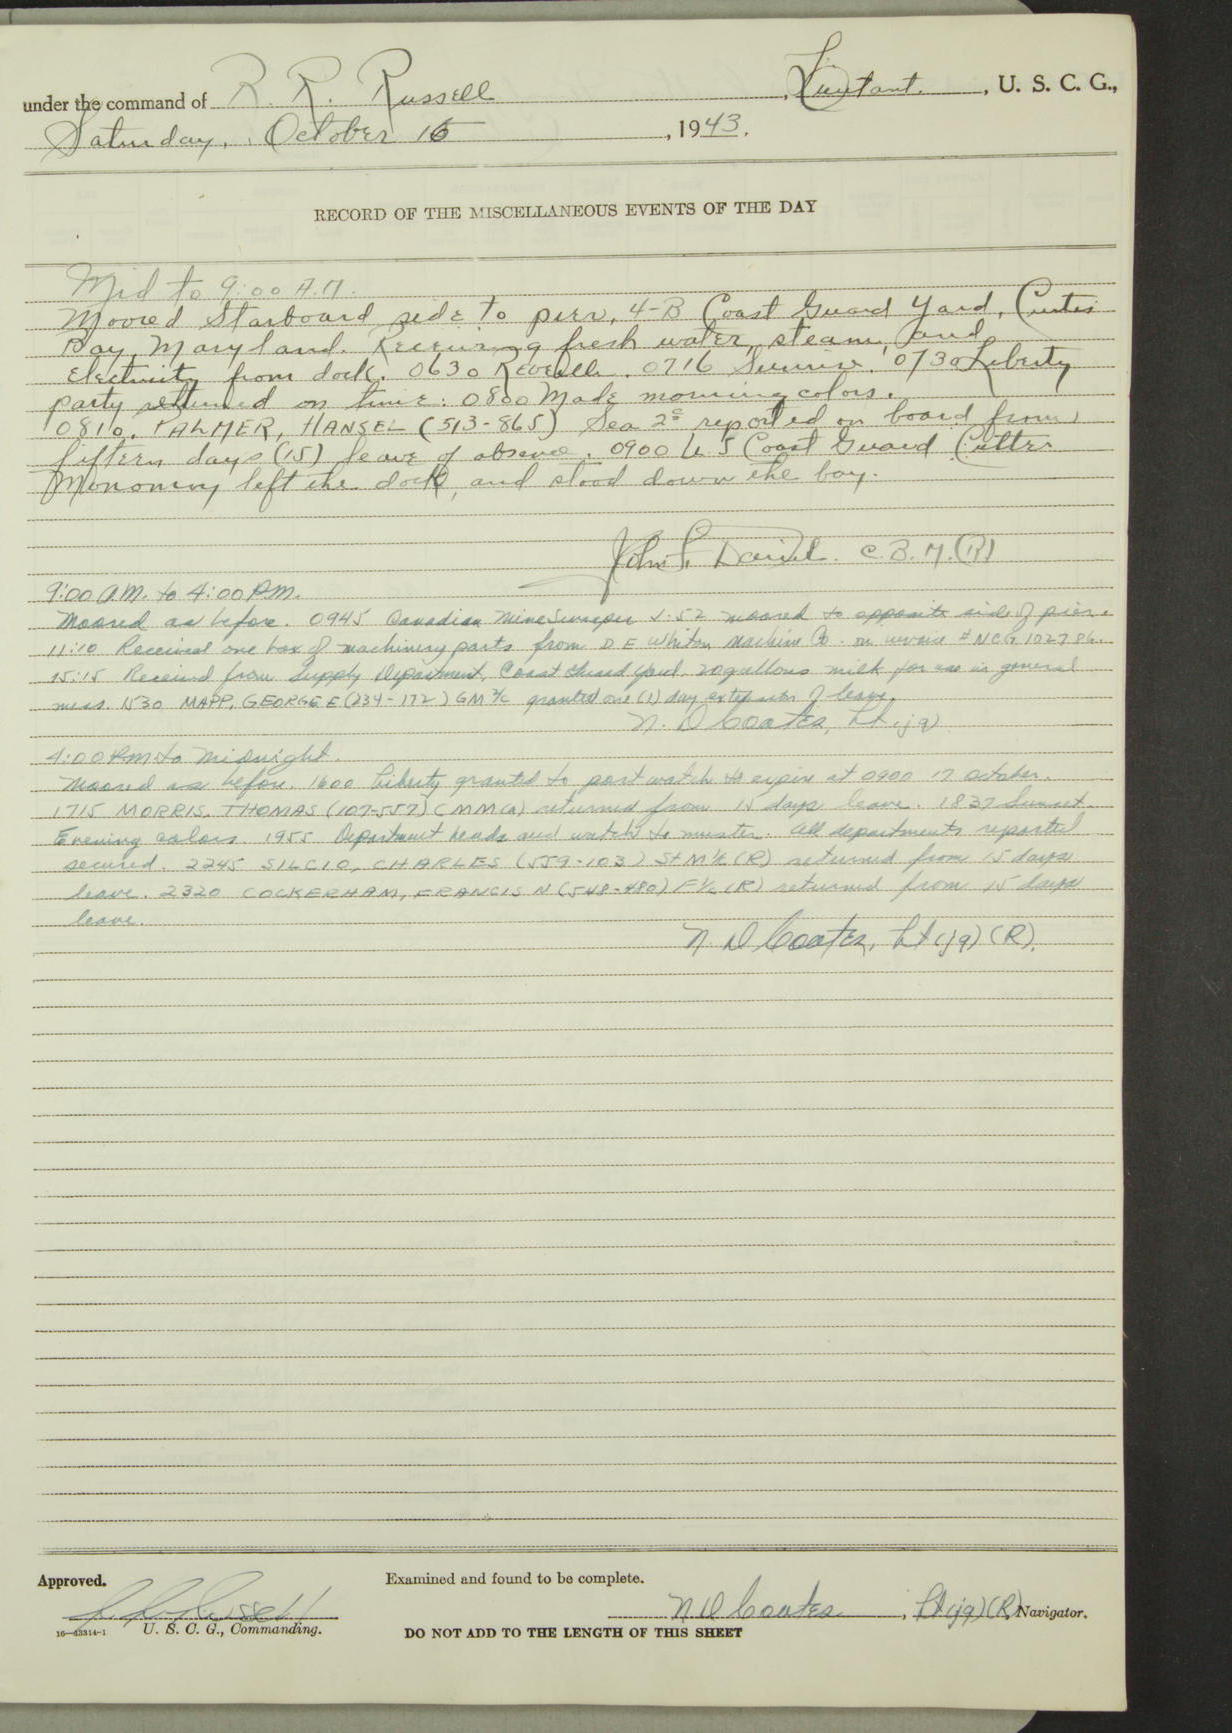 under the command of R. R. Russell, Lieutant., U. S. C. G.,
Saturday, October 16, 1943.
RECORD OF THE MISCELLANEOUS EVENTS OF THE DAY
Mid to 9:00 A.M.
Moored Starboard side to pier, 4-B Coast Guard Yard, Curtis
Bay, Maryland. Receiving fresh water, steam, and
Electricity from dock. 0630 Reveille. 0716 Sunrise. 0730 Liberty
party returned on time: 0800 Made morning colors.
0810. PALMER, HANSEL (513-865) Sea 2c reported on board from
fifteen days (15) leave of absence. 0900 U S Coast Guard Cutter
Monomoy left the dock, and stood down the bay.
John F. Daniel. C.B.M.(R)
9:00 A.M. to 4:00 P.M.
Moored as before. 0945 Canadian MineSweeper J-52 moored to opposite side of pier.
11:10 Received one box of machinery parts from D E Whiton Machine Co. on invoice # NCG 102786.
15:15 Received from Supply Department, Coast Guard Yard, 20 gallons milk for use in general
mess. 1530 MAPP, GEORGE E (234-172) GM 3/c granted one (1) day extension of leave.
N. D Coates, Lt. jg)
4:00 P.M. to Midnight.
Moored as before. 1600 Liberty granted to port watch to expire at 0900 17 October.
1715 MORRIS, THOMAS (107-557) CMM(a) returned from 15 days leave. 1837 Sunset.
Evening colors. 1955 Department heads and watch to muster. All departments reported
secured. 2245 SILCIO, CHARLES (559-103) StM 1/c (R) returned from 15 days
leave. 2320 COCKERHAM, FRANCIS N (548-480) F 1/c (R) returned from 15 days
leave.
N. D Coates, Lt (jg) (R).
Approved.
Examined and found to be complete.
R. R. Russell
N D Coates, Lt (jg) (R) Navigator.
16—43314-1 U. S. C. G., Commanding.
DO NOT ADD TO THE LENGTH OF THIS SHEET